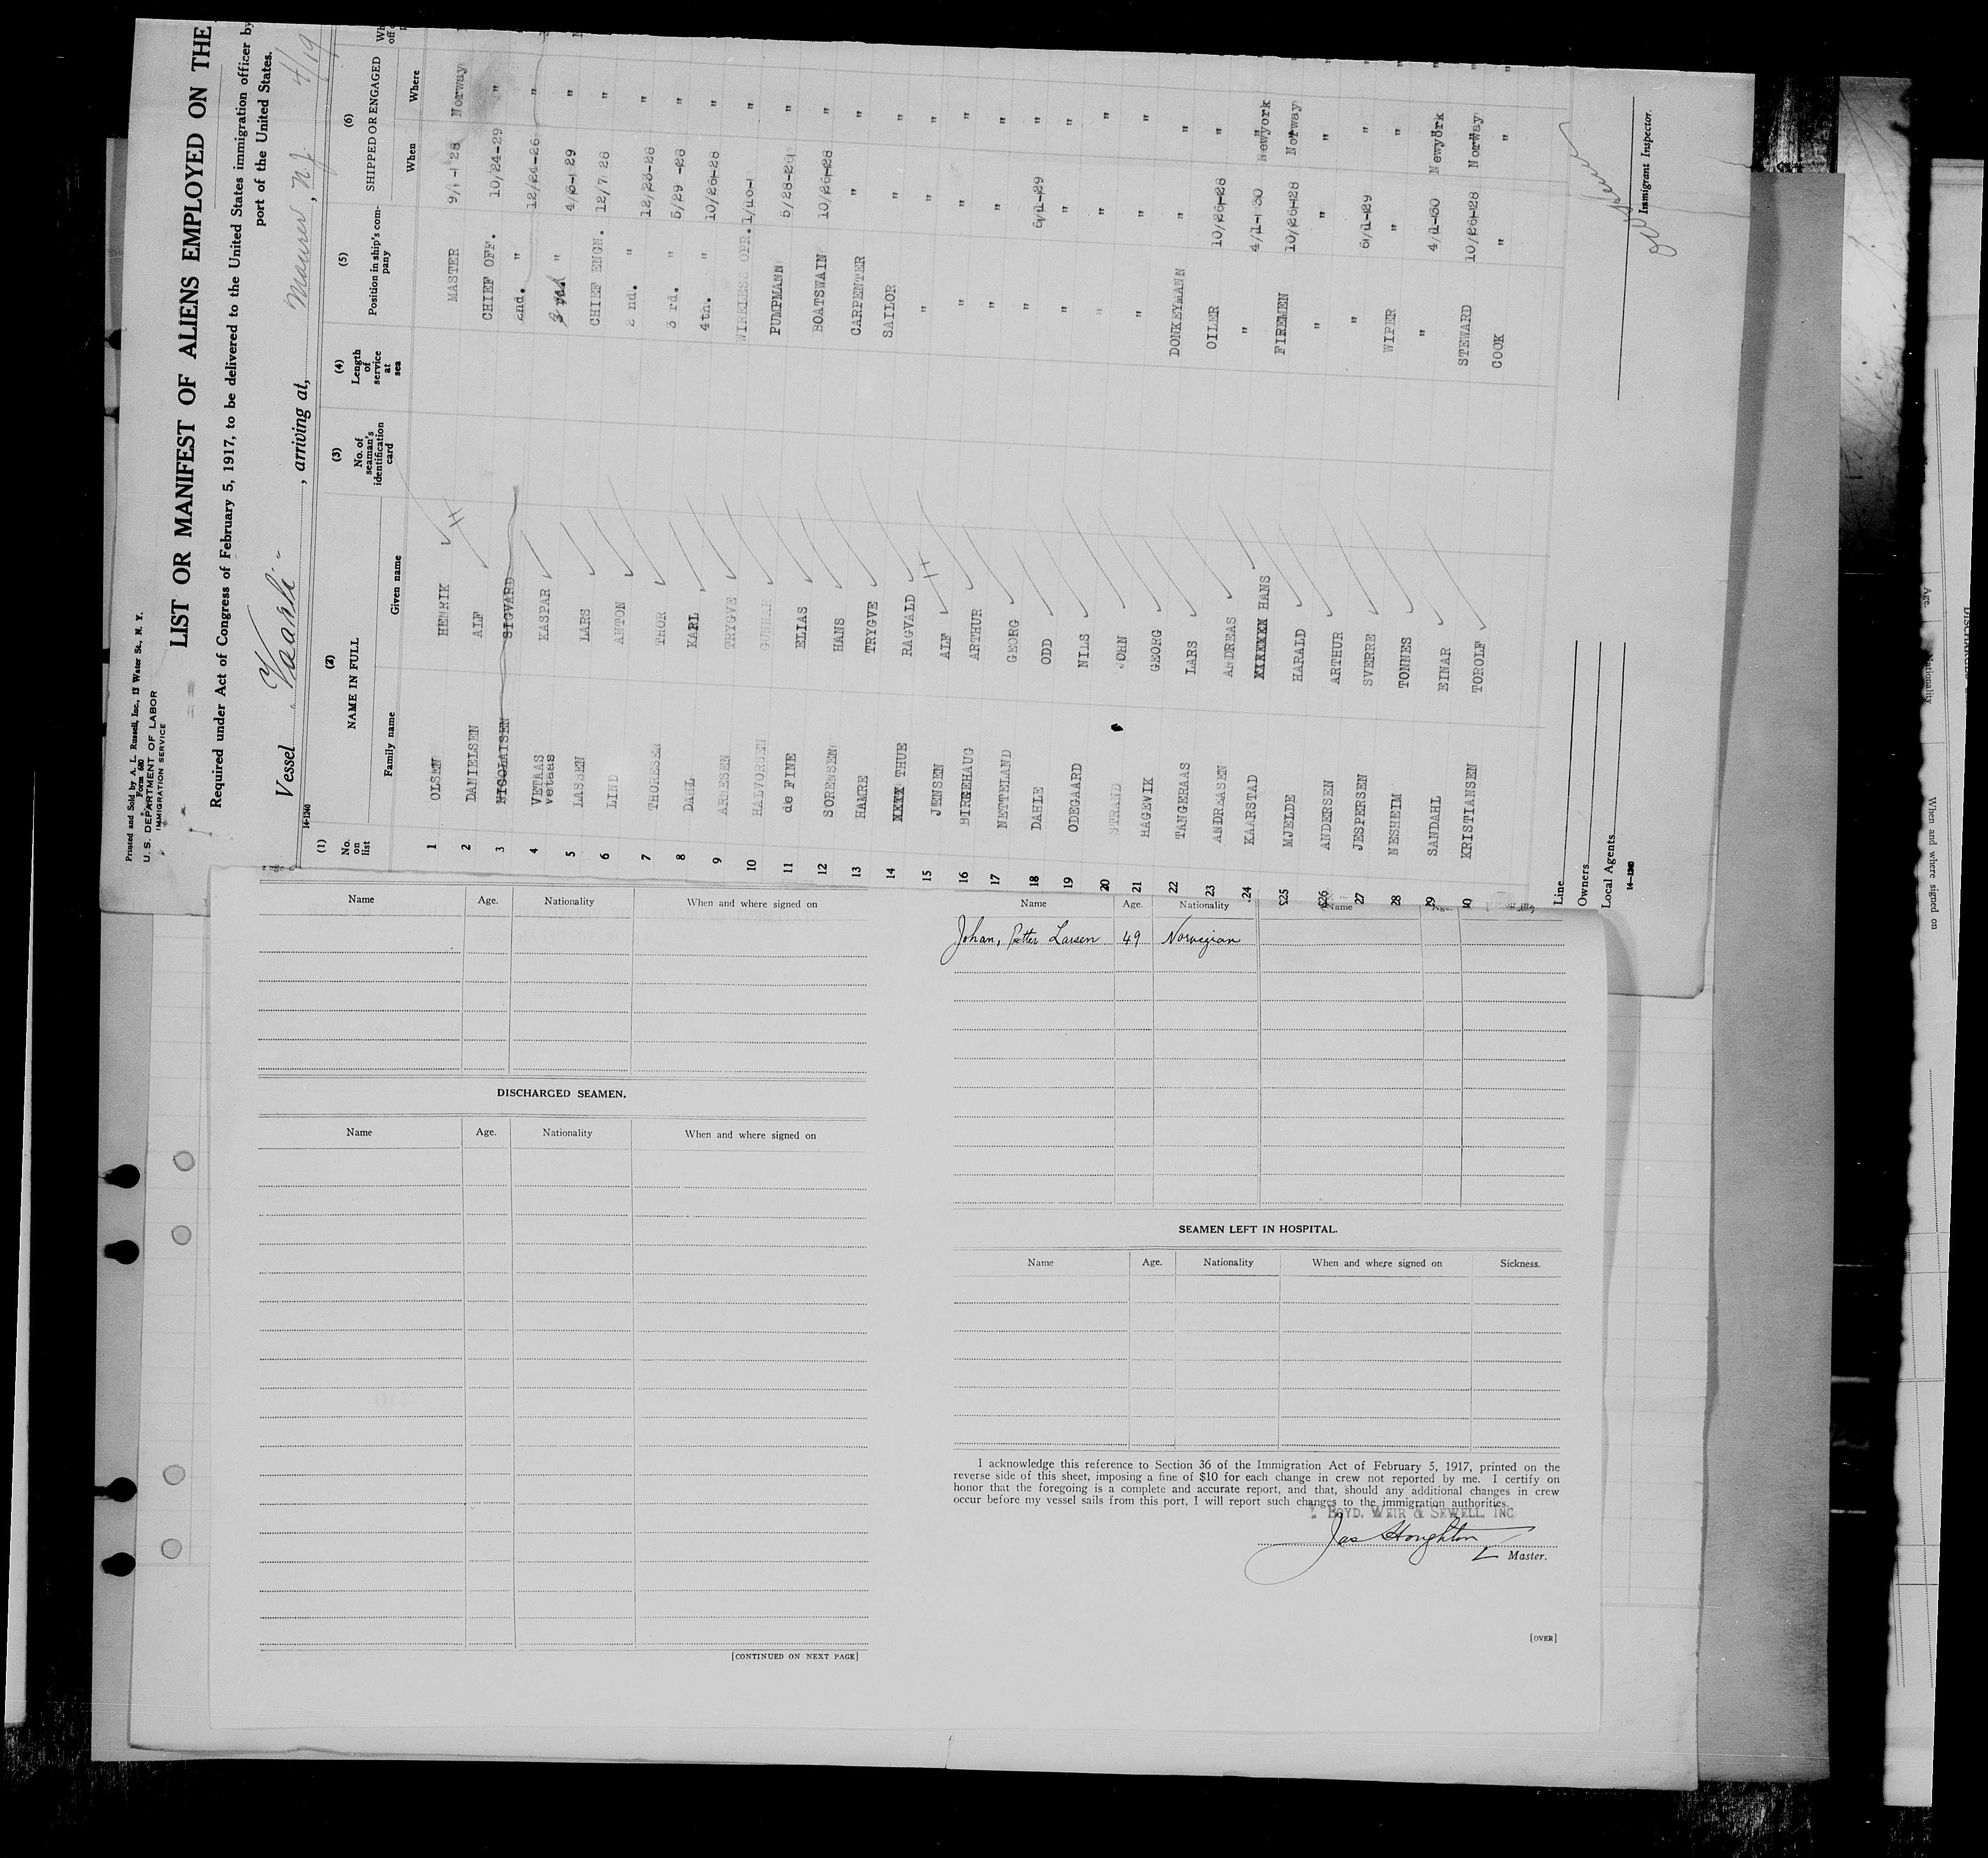 Printed and Sold by A. L. Russell, Inc., 13 Water St., N. Y.
Form 680
U. S. DEPARTMENT OF LABOR
IMMIGRATION SERVICE
LIST OR MANIFEST OF ALIENS EMPLOYED ON THE
Required under Act of Congress of February 5, 1917, to be delivered to the United States immigration officer by
port of the United States.
Vessel Vaarli , arriving at, Maurer, N.J. 4/19
14-1240
(1) (2) (3) (4) (5) (6)
No. on list NAME IN FULL No. of seaman's identification card Length of service at sea Position in ship's company SHIPPED OR ENGAGED
Family name Given name When Where
1 OLSEN HENRIK MASTER 9/1-28 Norway
2 DANIELSEN ALF CHIEF OFF. 10/24-29 "
3 NICOLAISEN SIGVARD 2nd. " 12/24-26 "
4 VETAAS KASPAR 3 rd. " 4/3-29 "
vetaas
5 LASSEN LARS CHIEF ENGN. 12/7 28 "
6 LIND ANTON 2 nd. " "
7 THORESEN THOR 3 rd. " 12/23-28 "
8 DAHL KARL 4th. " 5/29-28 "
9 ARNESEN TRYGVE WIRELESS OPR. 10/26-28 "
10 HALVORSEN GUNNAR PUMPMANN "
11 de FINE ELIAS BOATSWAIN 5/28-29 "
12 SORENSEN HANS CARPENTER 10/26-28 "
13 HAMRE TRYGVE SAILOR " "
14 THUE RAGVALD " " "
15 JENSEN ALF " " "
16 BIRKEHAUG ARTHUR " " "
17 NETTELAND GEORG " " "
18 DAHLE ODD " 6/1-29 "
19 ODEGAARD NILS " " "
20 STRAND JOHN " " "
21 HAGEVIK GEORG " " "
22 TANGERAAS LARS DONKEYMANN " "
23 ANDREASEN ANDREAS OILER 10/26-28 "
24 KAARSTAD HANS " 4/1-30 Newyork
25 MJELDE HARALD FIREMEN 10/26-28 Norway
26 ANDERSEN ARTHUR " " "
27 JESPERSEN SVERRE " 6/1-29 "
28 NESHEIM TONNES WIPER " "
29 SANDAHL EINAR " 4/1-30 Newyork
30 KRISTIANSEN TOROLF STEWARD 10/26-28 Norway
COOK " "
Line
Owners
Local Agents
14-1240
Immigrant Inspector.
Name Age. Nationality When and where signed on
DISCHARGED SEAMEN.
Name Age. Nationality When and where signed on
[CONTINUED ON NEXT PAGE]
Name Age. Nationality Name
Johan, Petter Larsen 49 Norwegian
SEAMEN LEFT IN HOSPITAL.
Name Age. Nationality When and where signed on Sickness.
I acknowledge this reference to Section 36 of the Immigration Act of February 5, 1917, printed on the
reverse side of this sheet, imposing a fine of $10 for each change in crew not reported by me. I certify on
honor that the foregoing is a complete and accurate report, and that, should any additional changes in crew
occur before my vessel sails from this port, I will report such changes to the immigration authorities.
BOYD, WEIR & SEWELL, INC
Jas Houghton
Master.
[OVER]
Age. Nationality When and where signed on